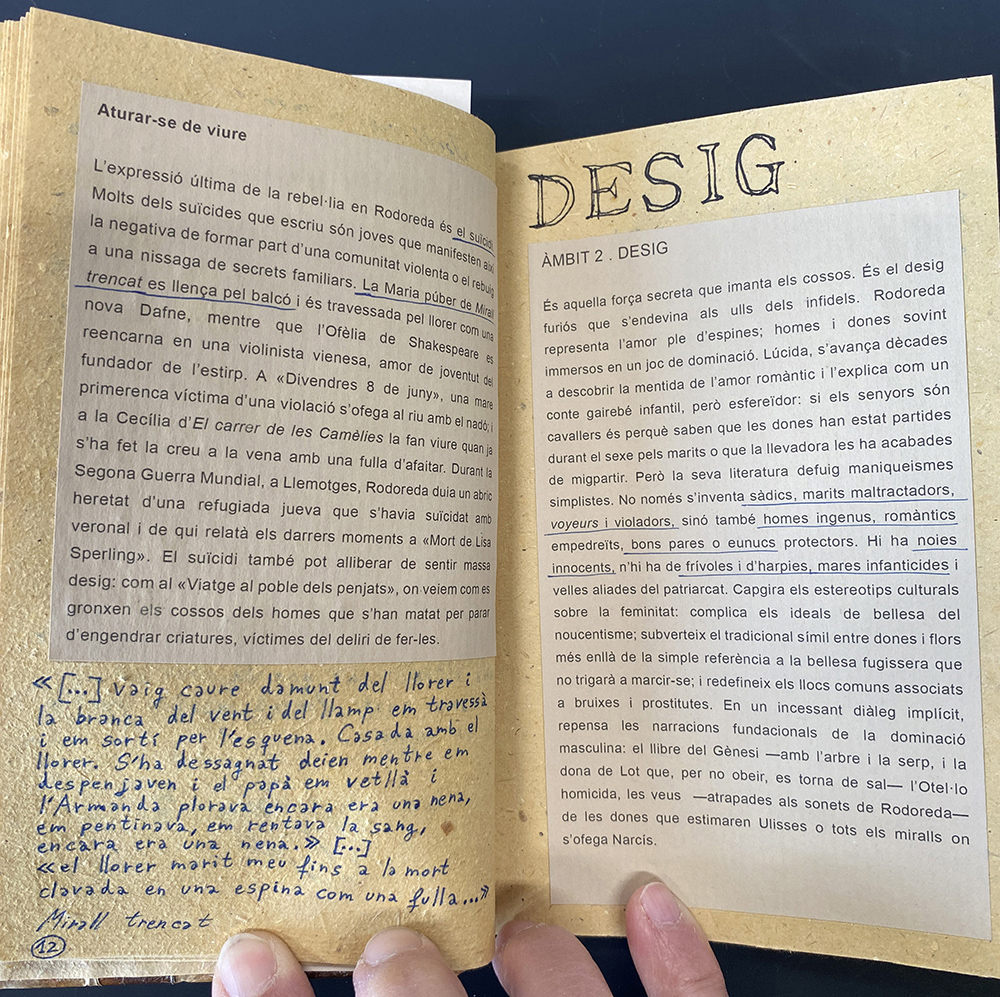 Aturar-se de viure
L'expressió última de la rebel·lia en Rodoreda és el suïcidi.
Molts dels suïcides que escriu són joves que manifesten així
la negativa de formar part d'una comunitat violenta o el rebuig
a una nissaga de secrets familiars. La Maria púber de Mirall
trencat es llença pel balcó i és travessada pel llorer com una
nova Dafne, mentre que l'Ofèlia de Shakespeare es
reencarna en una violinista vienesa, amor de joventut del
fundador de l'estirp. A «Divendres 8 de juny», una mare
primerenca víctima d'una violació s'ofega al riu amb el nadó; i
a la Cecília d'El carrer de les Camèlies la fan viure quan ja
s'ha fet la creu a la vena amb una fulla d'afaitar. Durant la
Segona Guerra Mundial, a Llemotges, Rodoreda duia un abric
heretat d'una refugiada jueva que s'havia suïcidat amb
veronal i de qui relatà els darrers moments a «Mort de Lisa
Sperling». El suïcidi també pot alliberar de sentir massa
desig: com al «Viatge al poble dels penjats», on veiem com es
gronxen els cossos dels homes que s'han matat per parar
d'engendrar criatures, víctimes del deliri de fer-les.
«[...] vaig caure damunt del llorer i
la branca del vent i del llamp em travessà
i em sortí per l'esquena. Casada amb el
llorer. S'ha dessagnat deien mentre em
despenjaven i el papà em vetllà i
l'Armanda plorava encara era una nena,
em pentinava, em rentava la sang,
encara era una nena.» [...]
«el llorer marit meu fins a la mort
clavada en una espina com una fulla...»
Mirall trencat
12
DESIG
ÀMBIT 2 . DESIG
És aquella força secreta que imanta els cossos. És el desig
furiós que s'endevina als ulls dels infidels. Rodoreda
representa l'amor ple d'espines; homes i dones sovint
immersos en un joc de dominació. Lúcida, s'avança dècades
a descobrir la mentida de l'amor romàntic i l'explica com un
conte gairebé infantil, però esfereïdor: si els senyors són
cavallers és perquè saben que les dones han estat partides
durant el sexe pels marits o que la llevadora les ha acabades
de migpartir. Però la seva literatura defuig maniqueismes
simplistes. No només s'inventa sàdics, marits maltractadors,
voyeurs i violadors, sinó també homes ingenus, romàntics
empedreïts, bons pares o eunucs protectors. Hi ha noies
innocents, n'hi ha de frívoles i d'harpies, mares infanticides i
velles aliades del patriarcat. Capgira els estereotips culturals
sobre la feminitat: complica els ideals de bellesa del
noucentisme; subverteix el tradicional símil entre dones i flors
més enllà de la simple referència a la bellesa fugissera que
no trigarà a marcir-se; i redefineix els llocs comuns associats
a bruixes i prostitutes. En un incessant diàleg implícit,
repensa les narracions fundacionals de la dominació
masculina: el llibre del Gènesi —amb l'arbre i la serp, i la
dona de Lot que, per no obeir, es torna de sal— l'Otel·lo
homicida, les veus —atrapades als sonets de Rodoreda—
de les dones que estimaren Ulisses o tots els miralls on
s'ofega Narcís.